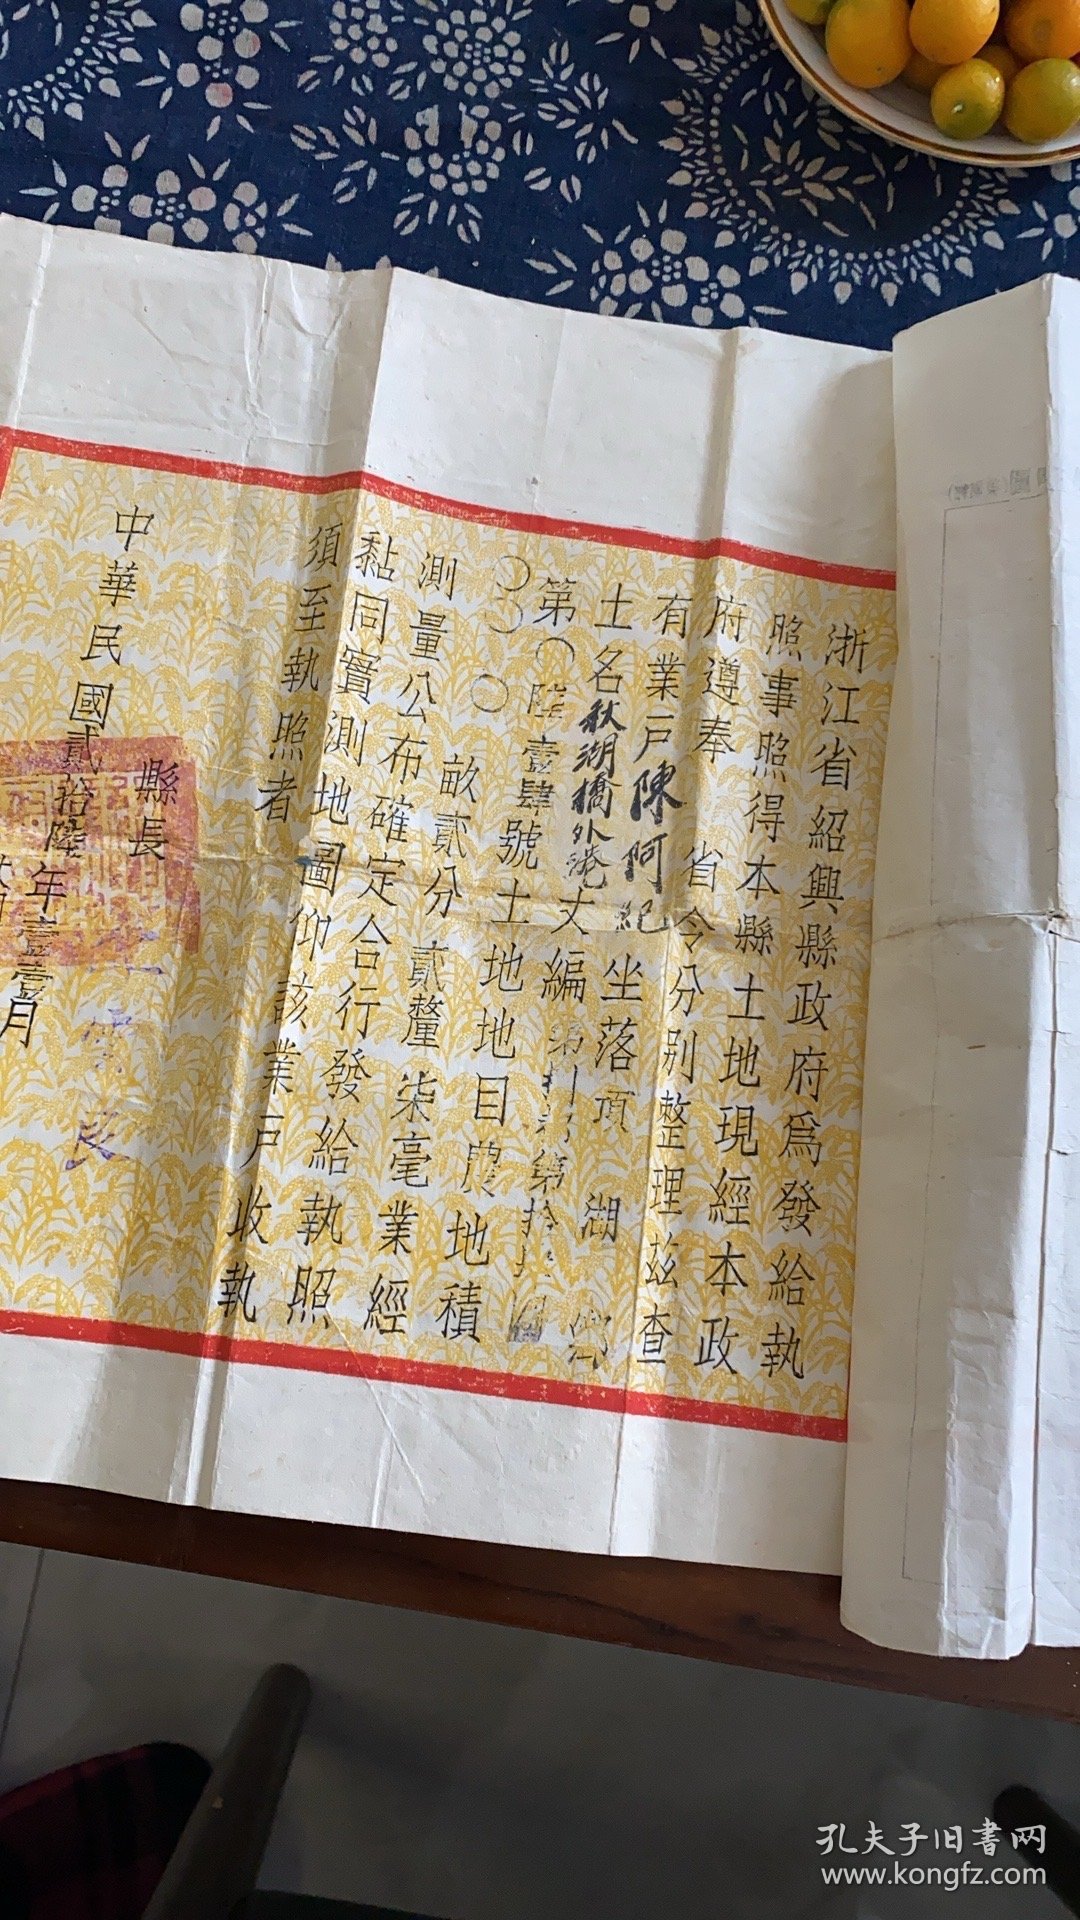 浙江省紹興縣政府爲發給執
照事照得本縣土地現經本政
府遵奉 省令分別整理茲查
有業戶陳阿紀 坐落項 湖 鄉
土名秋湖橋外港丈編第 第拾
第〇陸壹肆號土地地目農地積
〇 畝貳分貳釐柒毫業經
測量公布確定合行發給執照
黏同實測地圖仰該業戶收執
須至執照者
縣長
中華民國貳拾陸年壹壹月
孔夫子旧書网
www.kongfz.com